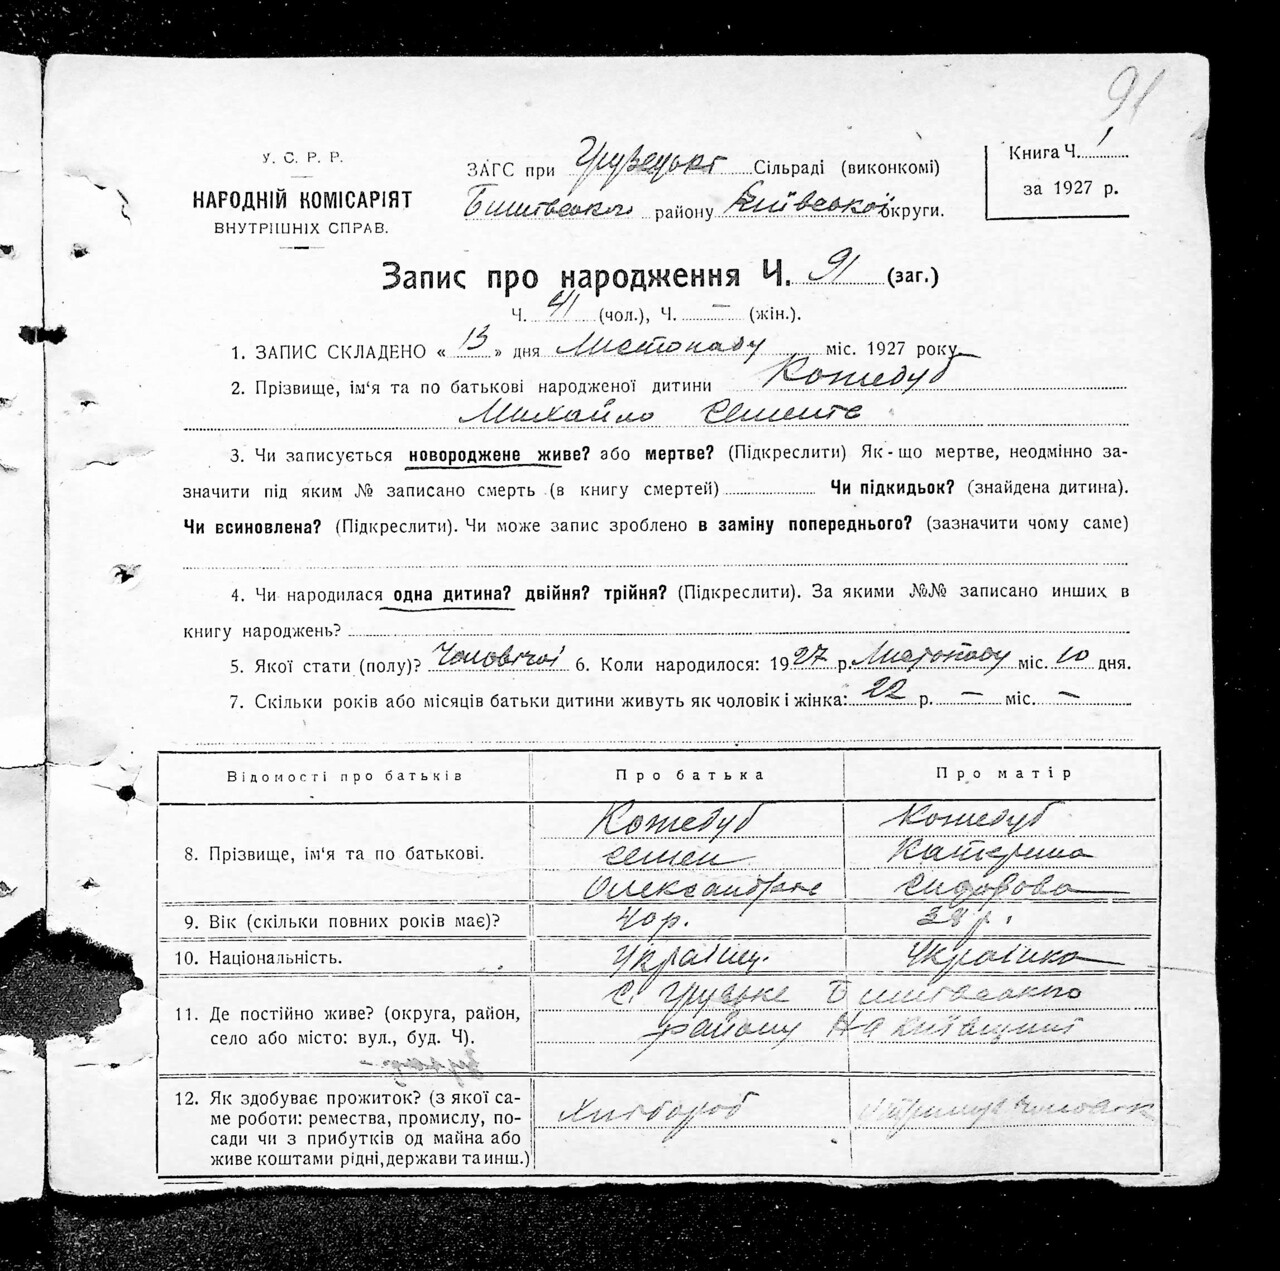 91
У. С. Р. Р.
НАРОДНІЙ КОМІСАРІЯТ
ВНУТРІШНІХ СПРАВ.
ЗАГС при Грузецькі Сільраді (виконкомі)
Бишівського району Київської округи.
Книга Ч. 1
за 1927 р.
Запис про народження Ч. 91 (заг.)
Ч. 41 (чол.), Ч. — (жін.).
1. ЗАПИС СКЛАДЕНО « 13 » дня Листопаду міс. 1927 року
2. Прізвище, ім‘я та по батькові народженої дитини Кожедуб
Михайло Семенів
3. Чи записується новороджене живе? або мертве? (Підкреслити) Як-що мертве, неодмінно за-
значити під яким № записано смерть (в книгу смертей) Чи підкидьок? (знайдена дитина).
Чи всиновлена? (Підкреслити). Чи може запис зроблено в заміну попереднього? (зазначити чому саме)
4. Чи народилася одна дитина? двійня? трійня? (Підкреслити). За якими №№ записано инших в
книгу народжень?
5. Якої стати (полу)? Чоловічої 6. Коли народилося: 1927 р. Листопаду міс. 10 дня.
7. Скільки років або місяців батьки дитини живуть як чоловік і жінка: 22 р. — міс. —
Відомості про батьків Про батька Про матір
Кожедуб Кожедуб
8. Прізвище, ім‘я та по батькові. Семен Катерина
Олександрів Сидорова
9. Вік (скільки повних років має)? 40 р. 38 р.
10. Національність. Українц. Українка
с. Грузьке Бишівського
11. Де постійно живе? (округа, район,
району На Київщині
село або місто: вул., буд. Ч).
12. Як здобуває прожиток? (з якої са-
ме роботи: ремества, промислу, по-
Хлібороб
сади чи з прибутків од майна або
живе коштами рідні, держави та инш.)